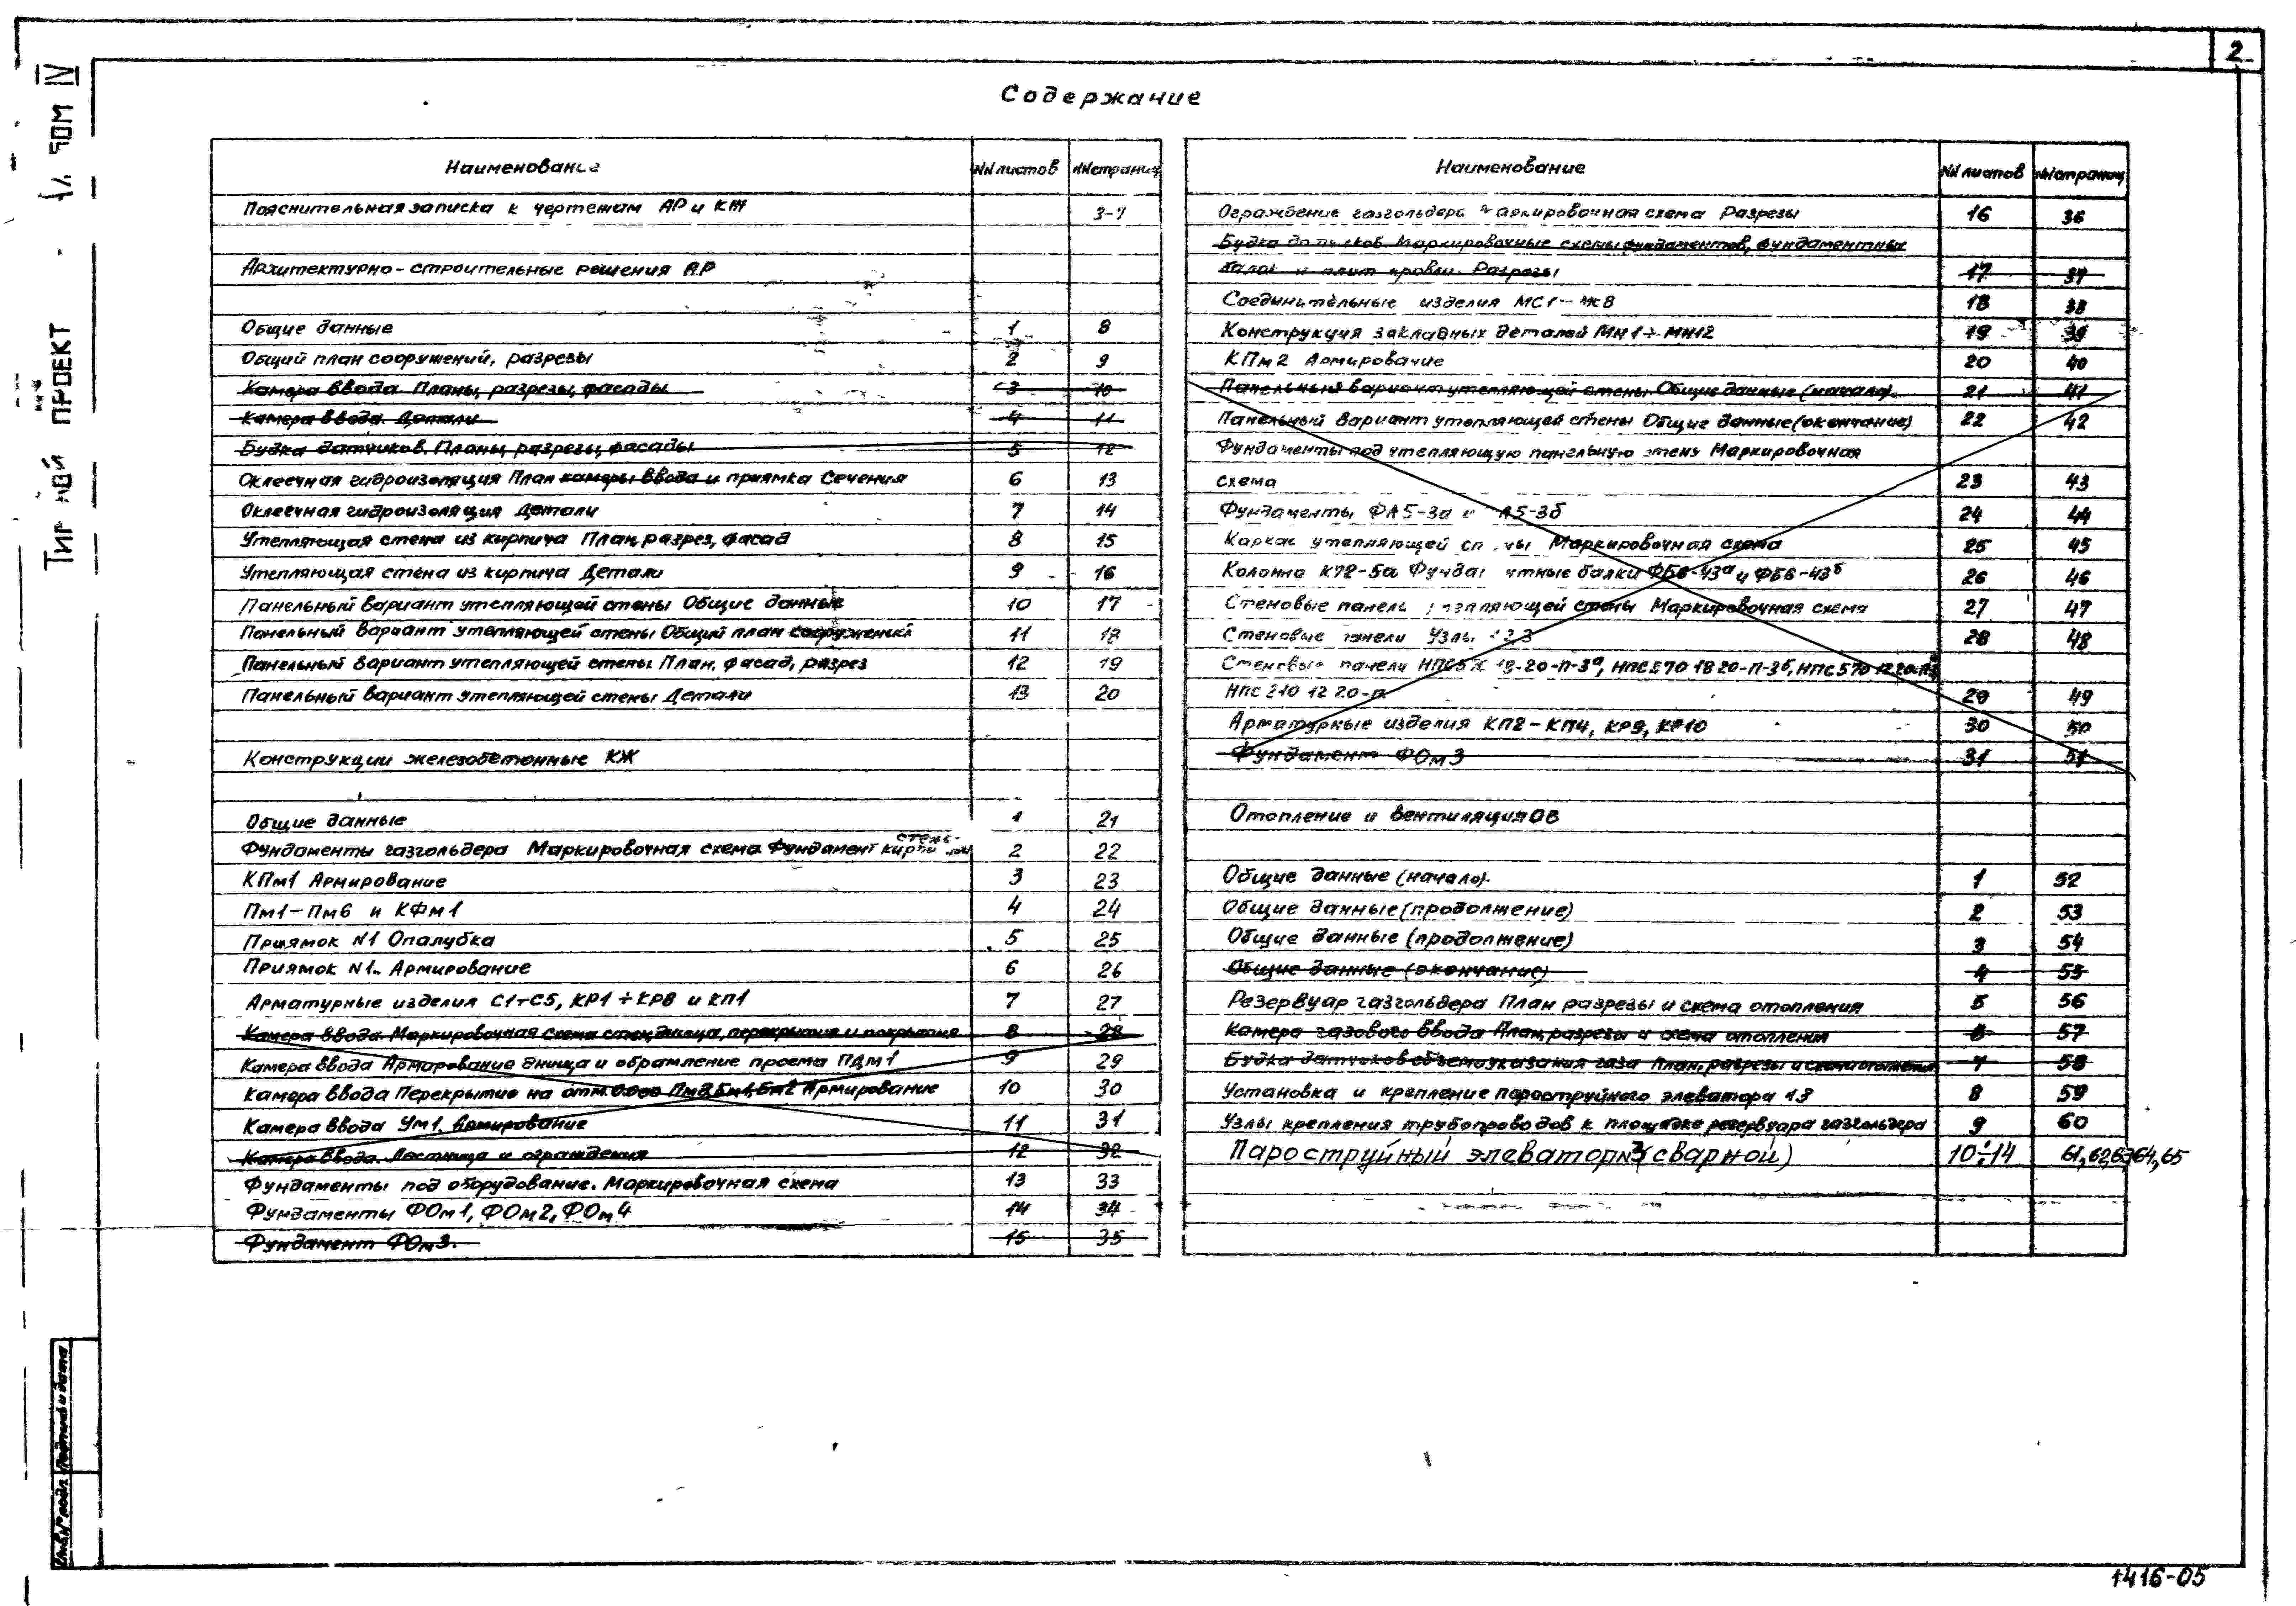 2
Содержание
Наименование NN листов NN страниц
Пояснительная записка к чертежам АР и КЖ 3-7
Архитектурно-строительные решения АР
Общие данные 1 8
Общий план сооружений, разрезы 2 9
Камера ввода. Планы, разрезы, фасады 3 10
Камера ввода. Детали. 4 11
Будка датчиков. Планы, разрезы, фасады 5 12
Оклеечная гидроизоляция План камеры ввода и приямка Сечения 6 13
Оклеечная гидроизоляция Детали 7 14
Утепляющая стена из кирпича План, разрез, фасад 8 15
Утепляющая стена из кирпича Детали 9 16
Панельный вариант утепляющей стены Общие данные 10 17
Панельный вариант утепляющей стены Общий план сооружений 11 18
Панельный вариант утепляющей стены План, фасад, разрез 12 19
Панельный вариант утепляющей стены Детали 13 20
Конструкции железобетонные КЖ
Общие данные 1 21
Фундаменты газгольдера Маркировочная схема Фундамент 2 22
КПм1 Армирование 3 23
Пм1-Пм6 и КФм1 4 24
Приямок N1 Опалубка 5 25
Приямок N1. Армирование 6 26
Арматурные изделия С1÷С5, КР1÷КР8 и КП1 7 27
Камера ввода. Маркировочная схема стен, днища, перекрытия и покрытия 8 28
Камера ввода Армирование днища и обрамление проема ПДм1 9 29
Камера ввода Перекрытие на отм. 0.000 Армирование 10 30
Камера ввода Ум1. Армирование 11 31
Камера ввода. Лестница и ограждения 12 32
Фундаменты под оборудование. Маркировочная схема 13 33
Фундаменты ФОм1, ФОм2, ФОм4 14 34
Фундамент ФОм3. 15 35
Наименование NN листов NN страниц
Ограждение газгольдера Маркировочная схема Разрезы 16 36
Будка датчиков. Маркировочные схемы фундаментов, фундаментных
балок и плит кровли. Разрезы 17 37
Соединительные изделия МС1-МС8 18 38
Конструкция закладных деталей МН1÷МН12 19 39
КПм2 Армирование 20 40
Панельный вариант утепляющей стены Общие данные (начало). 21 41
Панельный вариант утепляющей стены Общие данные (окончание) 22 42
Фундаменты под утепляющую панельную стену Маркировочная
схема 23 43
Фундаменты ФА5-3а и А5-3б 24 44
Каркас утепляющей стены Маркировочная схема 25 45
Колонна К72-5а Фундаментные балки ФБ6-43а и ФБ6-43б 26 46
Стеновые панели утепляющей стены Маркировочная схема 27 47
Стеновые панели Узлы 1 2 3 28 48
Стеновые панели НПС570 18-20-П-3а, НПС570 18 20-П-3б, НПС570 12 20-П-3
НПС 210 12 20-п 29 49
Арматурные изделия КП2-КП4, КР9, КР10 30 50
Фундамент ФОм3 31 51
Отопление и вентиляция ОВ
Общие данные (начало). 1 52
Общие данные (продолжение) 2 53
Общие данные (продолжение) 3 54
Общие данные (окончание) 4 55
Резервуар газгольдера План разрезы и схема отопления 5 56
Камера газового ввода План, разрезы и схема отопления 6 57
Будка датчиков объемоуказания газа План, разрезы и схема отопления 7 58
Установка и крепление пароструйного элеватора 13 8 59
Узлы крепления трубопроводов к площадке резервуара газгольдера 9 60
Пароструйный элеватор N3 (сварной) 10÷14 61, 62, 63, 64, 65
ПРОЕКТ
IV
Подпись и дата
Инв.N подл.
1416-05